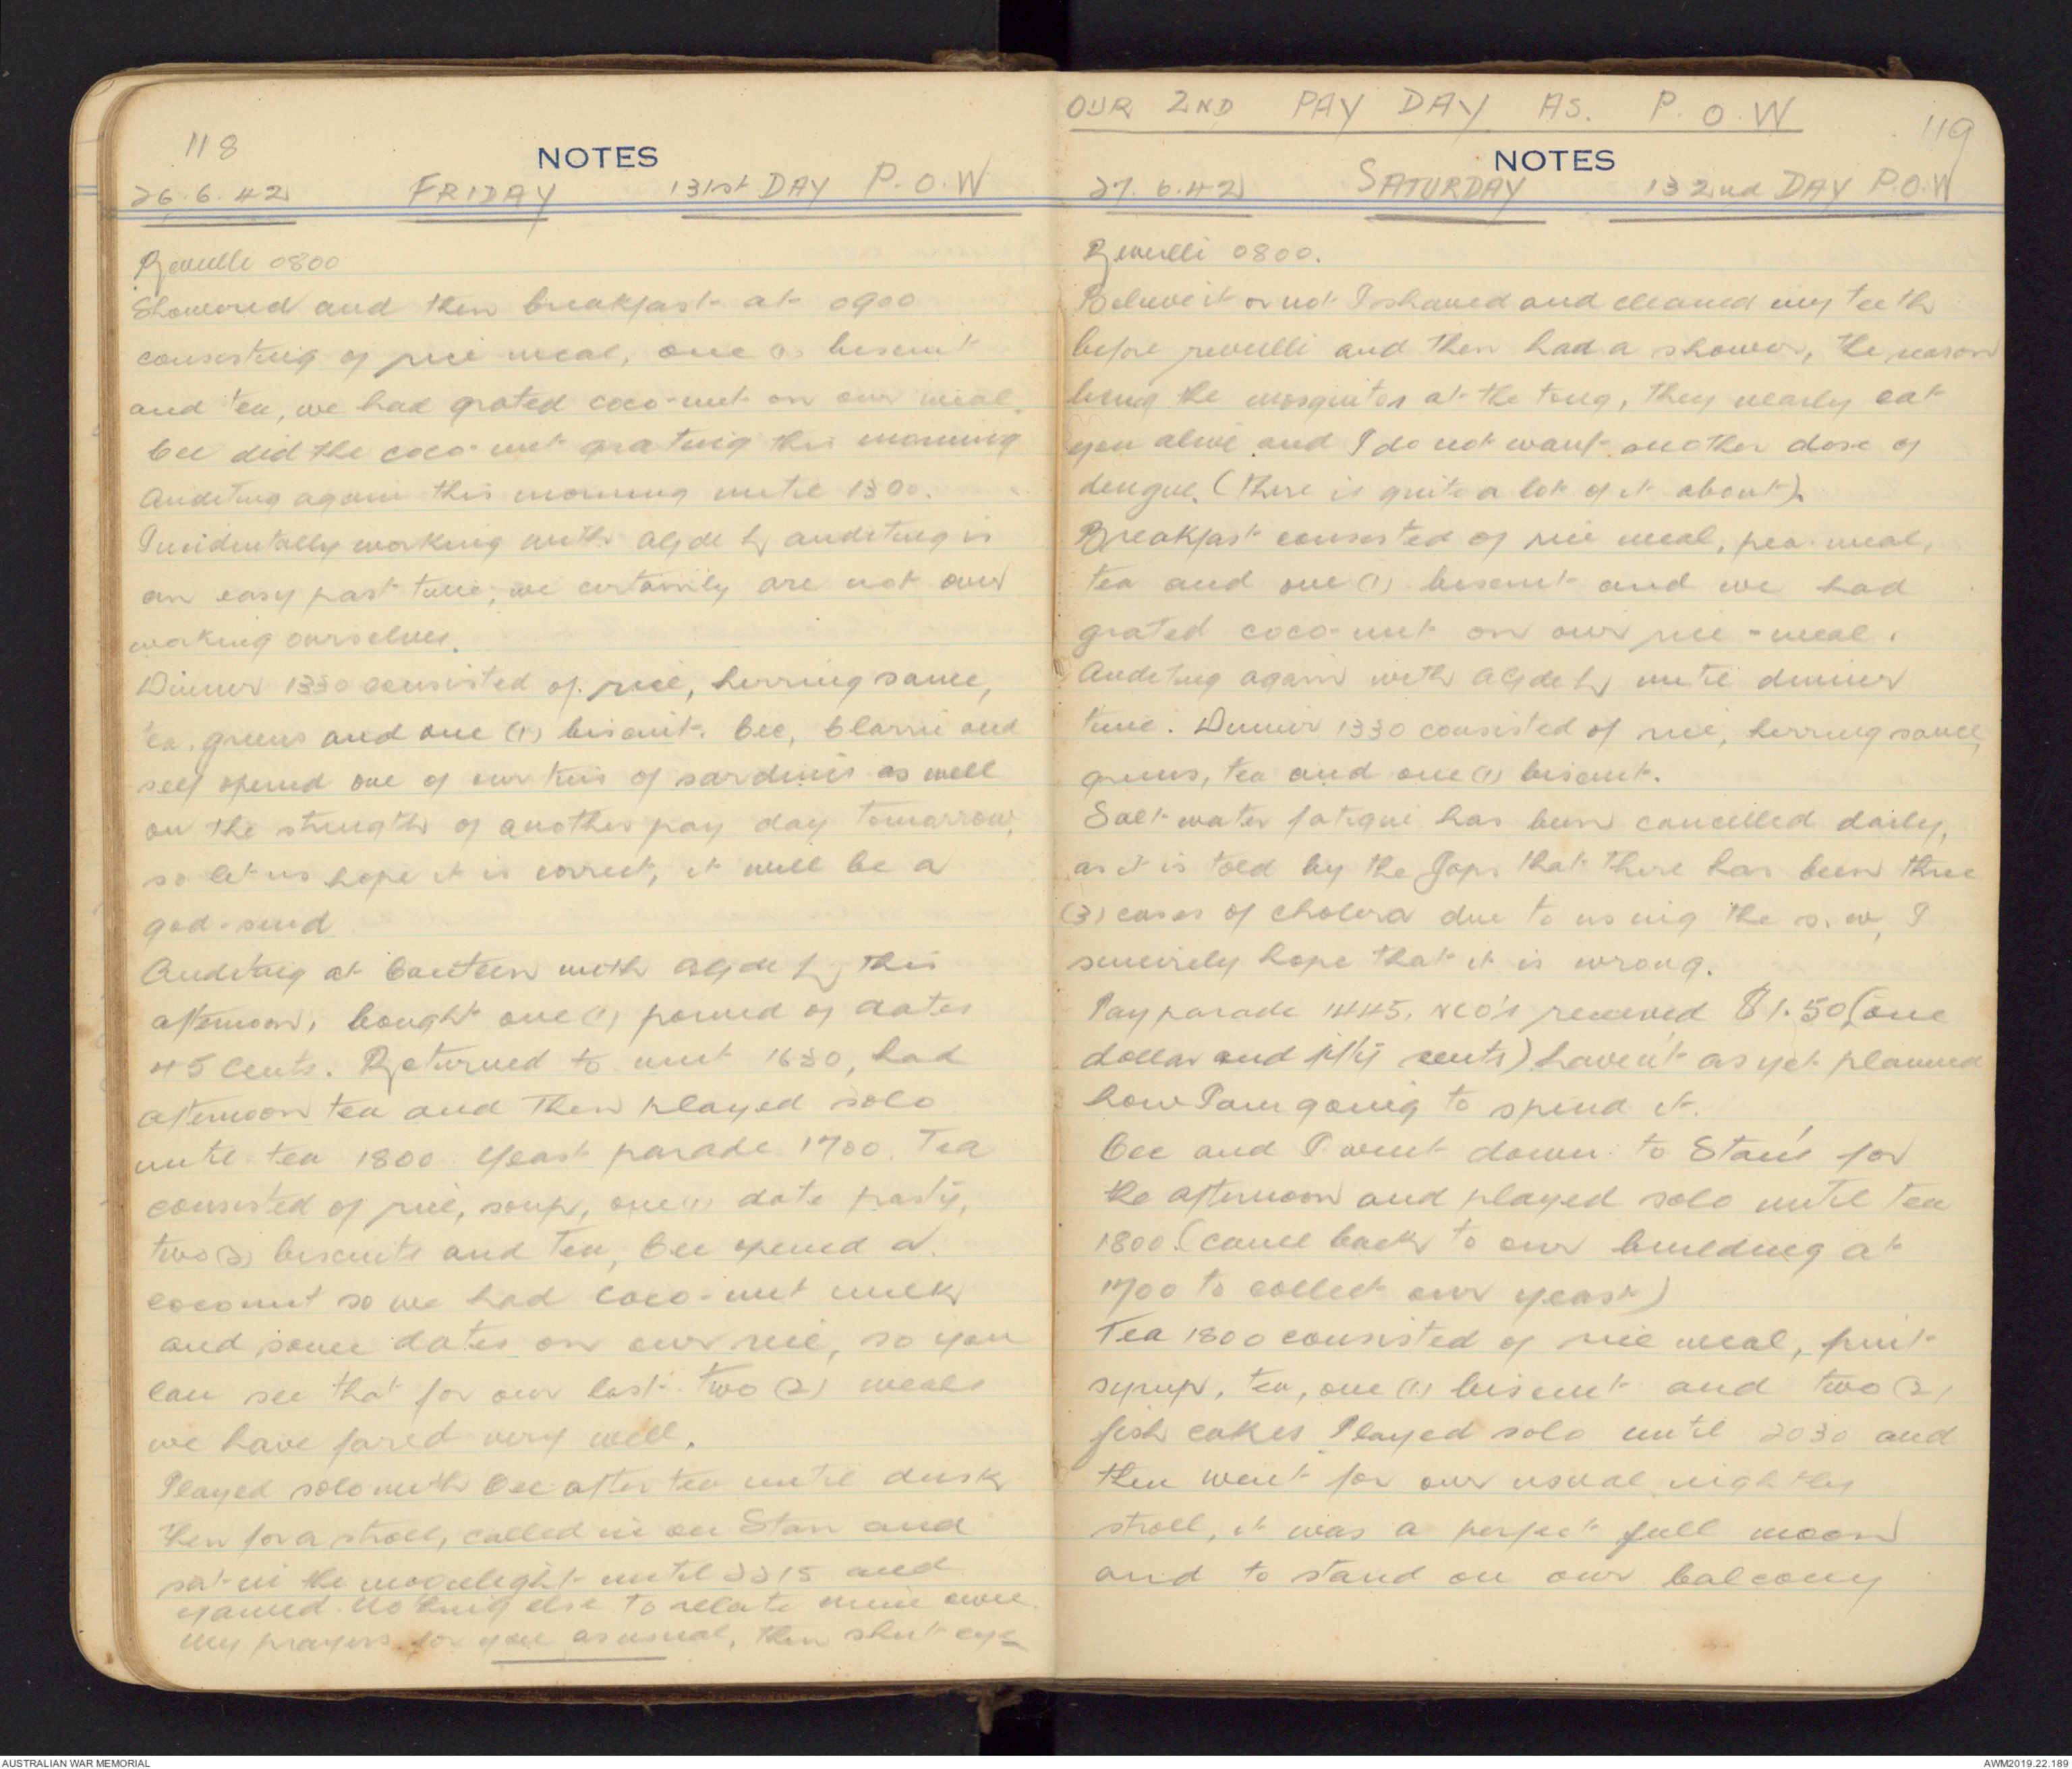 118
NOTES
26.6.42 FRIDAY 131st DAY P.O.W
Reveille 0800
Showered and then breakfast at 0900
consisting of rice meal, one (1) biscuit
and tea, we had grated coco-nut on our meal.
Cec did the coco-nut grating this morning
Auditing again this morning until 1300.
Incidentally working with Clyde H, auditing is
an easy past time, we certainly are not over
working ourselves.
Dinner 1330 consisted of rice, herring sauce,
tea, greens and one (1) biscuit. Cec, Clarrie and
self opened one of our tins of sardines as well
on the strength of another pay day tomorrow,
so let us hope it is correct, it will be a
god-send
Auditing at Canteen with Clyde H, this
afternoon, bought one (1) pound of dates
45 Cents. Returned to unit 1630, had
afternoon tea and then played solo
until tea 1800. Yeast parade 1700. Tea
consisted of rice, soup, one (1) date pasty,
two (2) biscuits and tea, Cec opened a
coconut so we had coco-nut milk
and some dates on our rice, so you
can see that for our last two (2) meals
we have fared very well.
Played solo with Cec after tea until dusk
then for a stroll, called in on Stan and
sat in the moonlight until 2215 and
yarned. Nothing else to relate mine own.
My prayers for you as usual, then shut eye
OUR 2ND PAY DAY AS. P.O.W
119
NOTES
27.6.42 SATURDAY 132nd DAY P.O.W
Reveilli 0800.
Believe it or not I shaved and cleaned my teeth
before reveilli and then had a shower, the reason
being the mosquitos at the tong, they nearly eat
you alive and I do not want another dose of
dengue. (There is quite a lot of it about).
Breakfast consisted of rice meal, pea-meal,
tea and one (1) biscuit and we had
grated coco-nut on our rice-meal.
Auditing again with Clyde H, until dinner
time. Dinner 1330 consisted of rice, herring sauce,
greens, tea and one (1) biscuit.
Salt water fatigue has been cancelled daily,
as it is told by the Japs that there has been three
(3) cases of cholera due to using the s.w, I
sincerely hope that it is wrong.
Pay parade 1445. NCO's received $1.50 (one
dollar and fifty cents) haven't as yet planned
how I am going to spend it.
Cec and I went down to Stan's for
the afternoon and played solo until tea
1800. (came back to our building at
1700 to collect our yeast)
Tea 1800 consisted of rice meal, fruit
syrup, tea, one (1) biscuit and two (2)
fish cakes Played solo until 2030 and
then went for our usual nightly
stroll, it was a perfect full moon
and to stand on our balcony
AUSTRALIAN WAR MEMORIAL
AWM2019.22.189